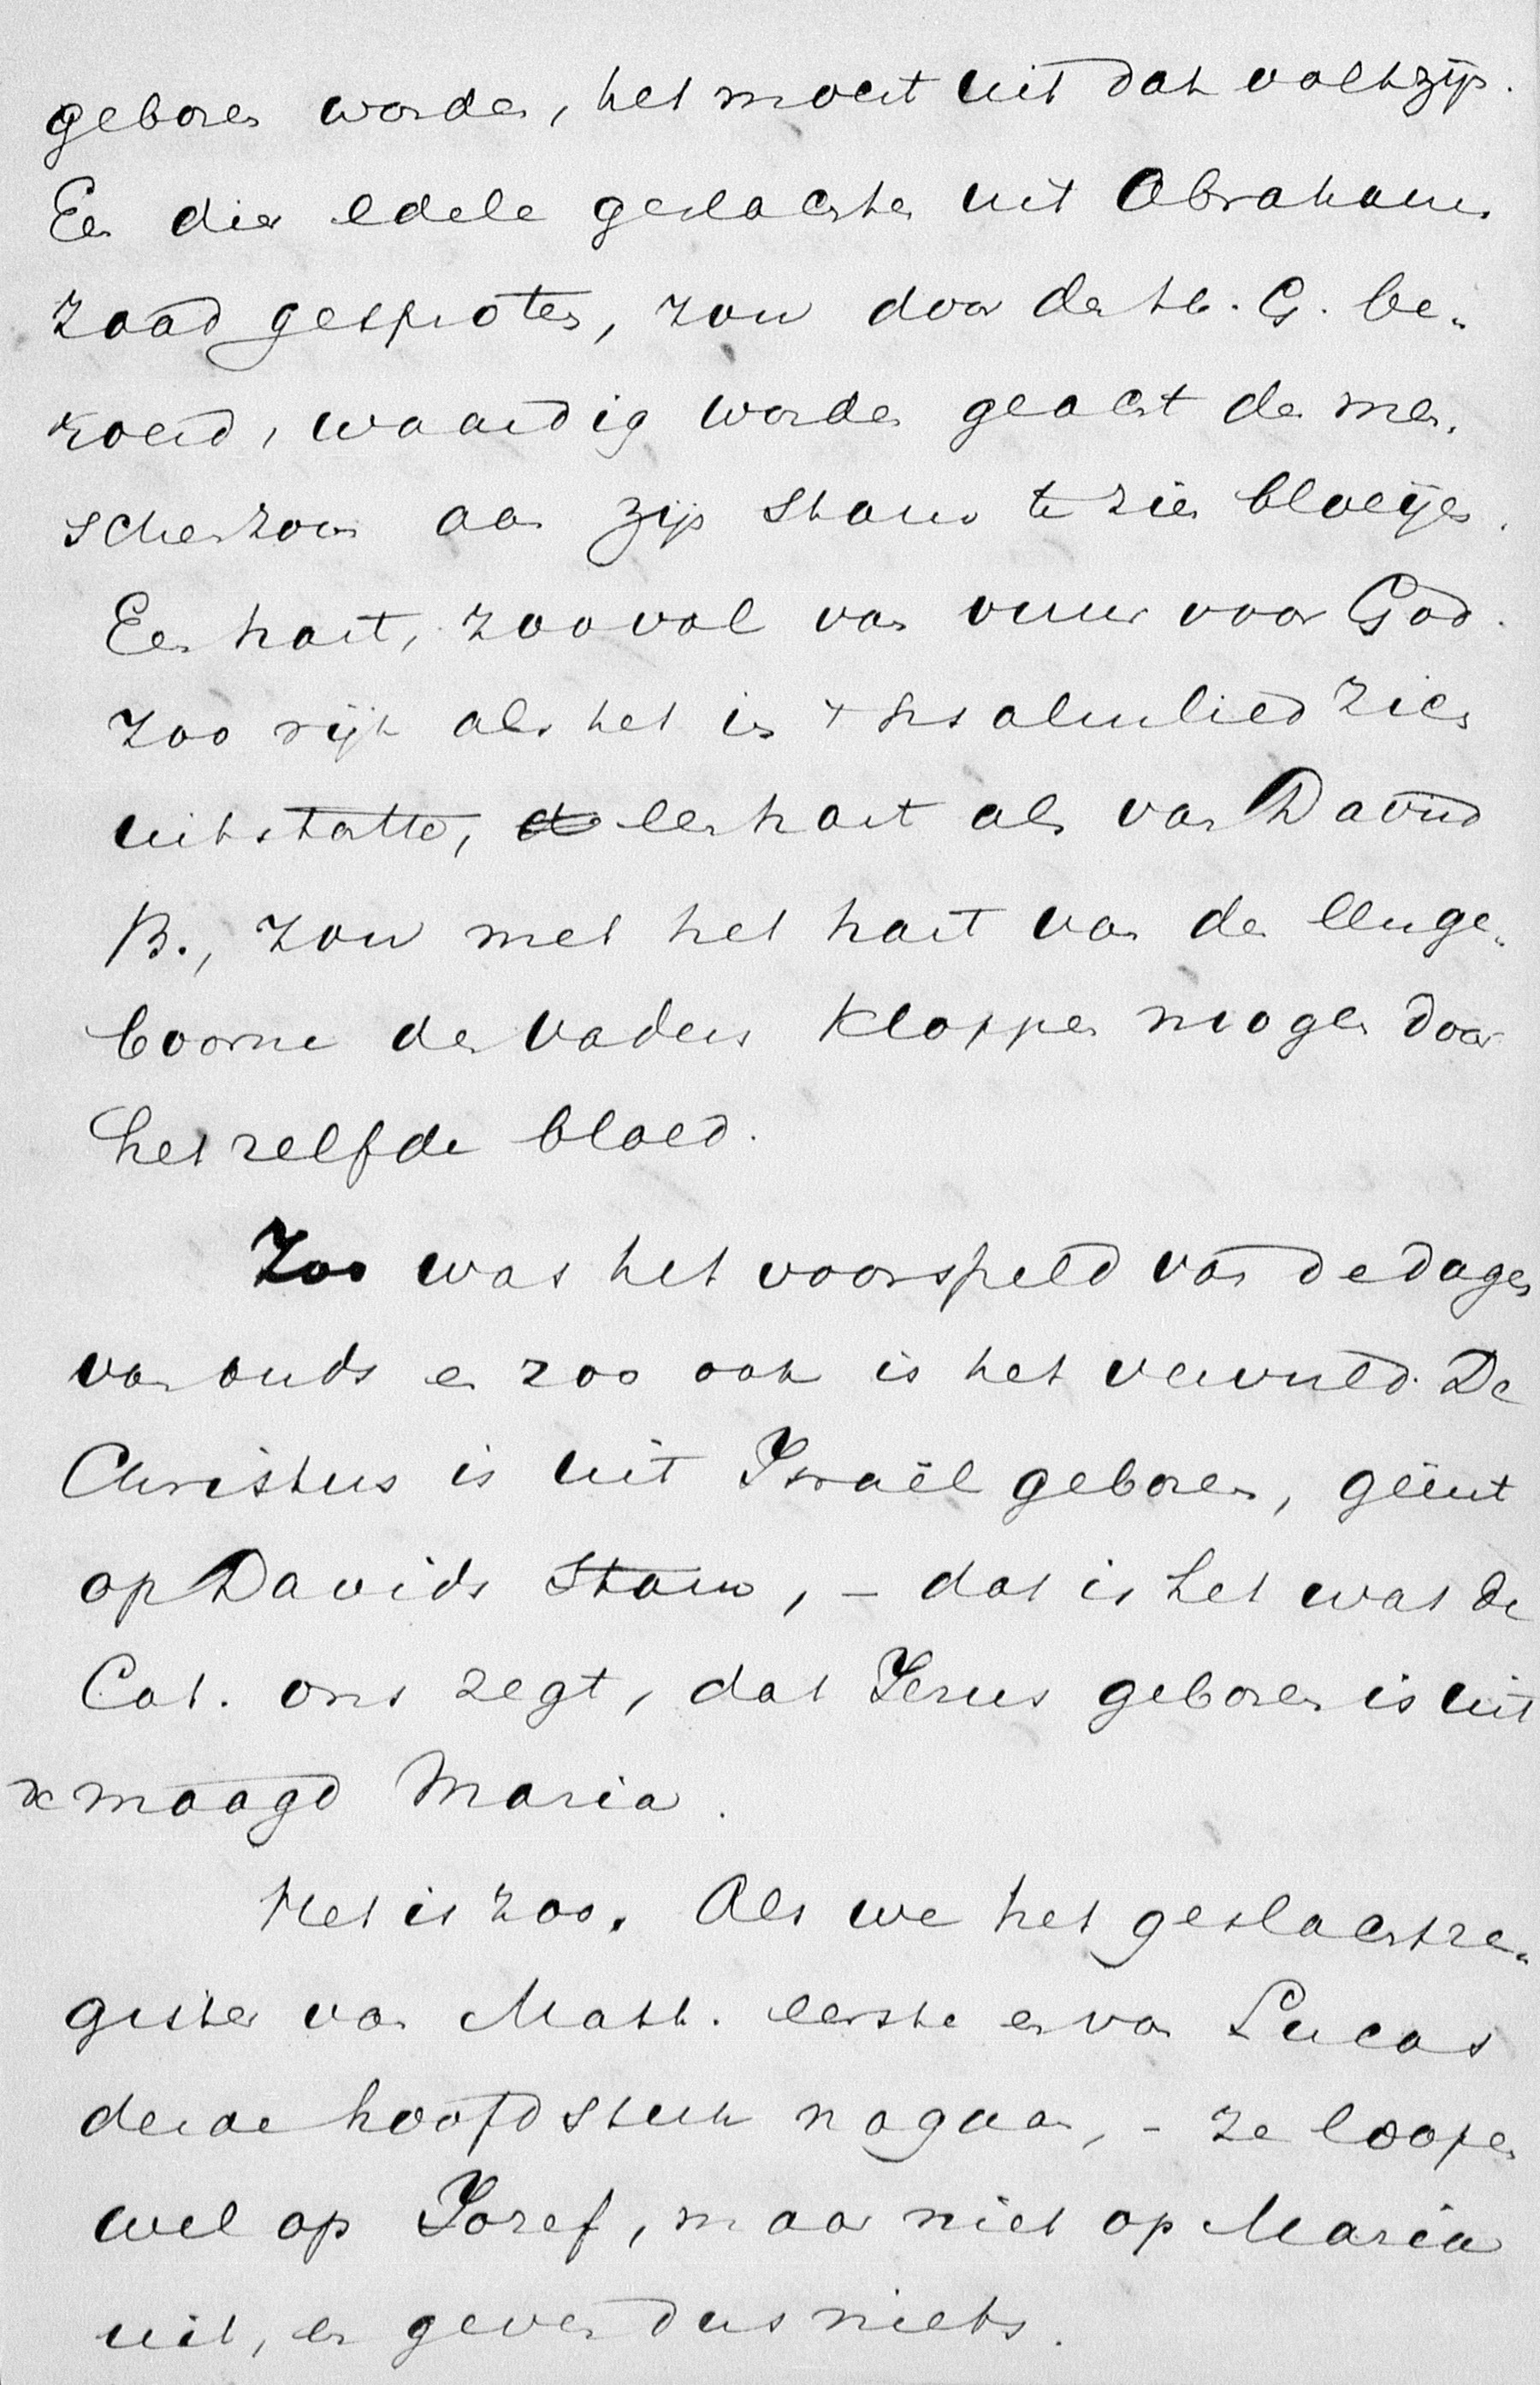 geboren worden, het moest uit dat volk zijn.
Een dier edele geslachten uit Abrahams
zaad gesproten, zou door den H. G. be-
roerd, waardig worden geacht den men-
schenzoon aan zijn stam te zien bloeijen.
Een hart, zoo vol van vuur voor God.
zoo rijk als het in psalmlied zich
uitstortte, een hart als van David
B., zou met het hart van den eenge-
boorne des Vaders kloppen mogen door
hetzelfde bloed.
Zoo was het voorspeld van de dagen
van ouds en zoo ook is het vervuld. De
Christus is uit Israël geboren, geënt
op Davids stam, – dat is het wat de
Cat. ons zegt, dat Jezus geboren is uit
de maagd Maria.
Het is zoo. Als we het geslachtsre-
gister van Matth. eerste en van Lucas
derde hoofdstuk nagaan, – ze loopen
wel op Jozef, maar niet op Maria
uit, en geven dus niets.